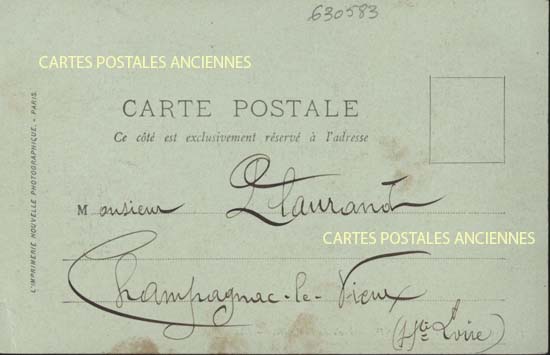 630583
CARTES POSTALES ANCIENNES
CARTE POSTALE
Ce côté est exclusivement réservé à l'adresse
Monsieur Plaurand
CARTES POSTALES ANCIENNES
Champagnac-le-Vieux
(Hte Loire)
L'IMPRIMERIE NOUVELLE PHOTOGRAPHIQUE. - PARIS.